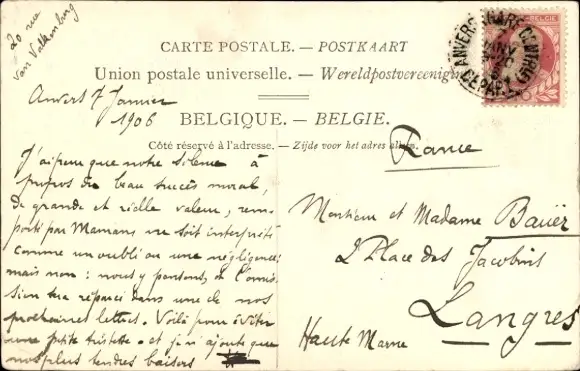 20 rue
van Valkenburg
CARTE POSTALE. — POSTKAART
Union postale universelle. — Wereldpostvereeniging
Anvers 7 Janvier
1906
BELGIQUE. — BELGIE.
Côté réservé à l'adresse. — Zijde voor het adres alleen.
ANVERS (GARE CENTRALE)
JANV
DEPART
BELGIE
J'ai peur que notre silence à
propos du beau succès moral,
de grande et réelle valeur, rem-
porté par Maman ne soit interprété
comme un oubli ou une négligence
mais non : nous y pensons, et l'omis-
sion sera réparée dans une de nos
prochaines lettres. Voilà pour éviter
une petite tristesse. et je n'ajoute que
nos plus tendres baisers
France
Monsieur et Madame Baüer
2 Place des Jacobins
Langres
Haute Marne